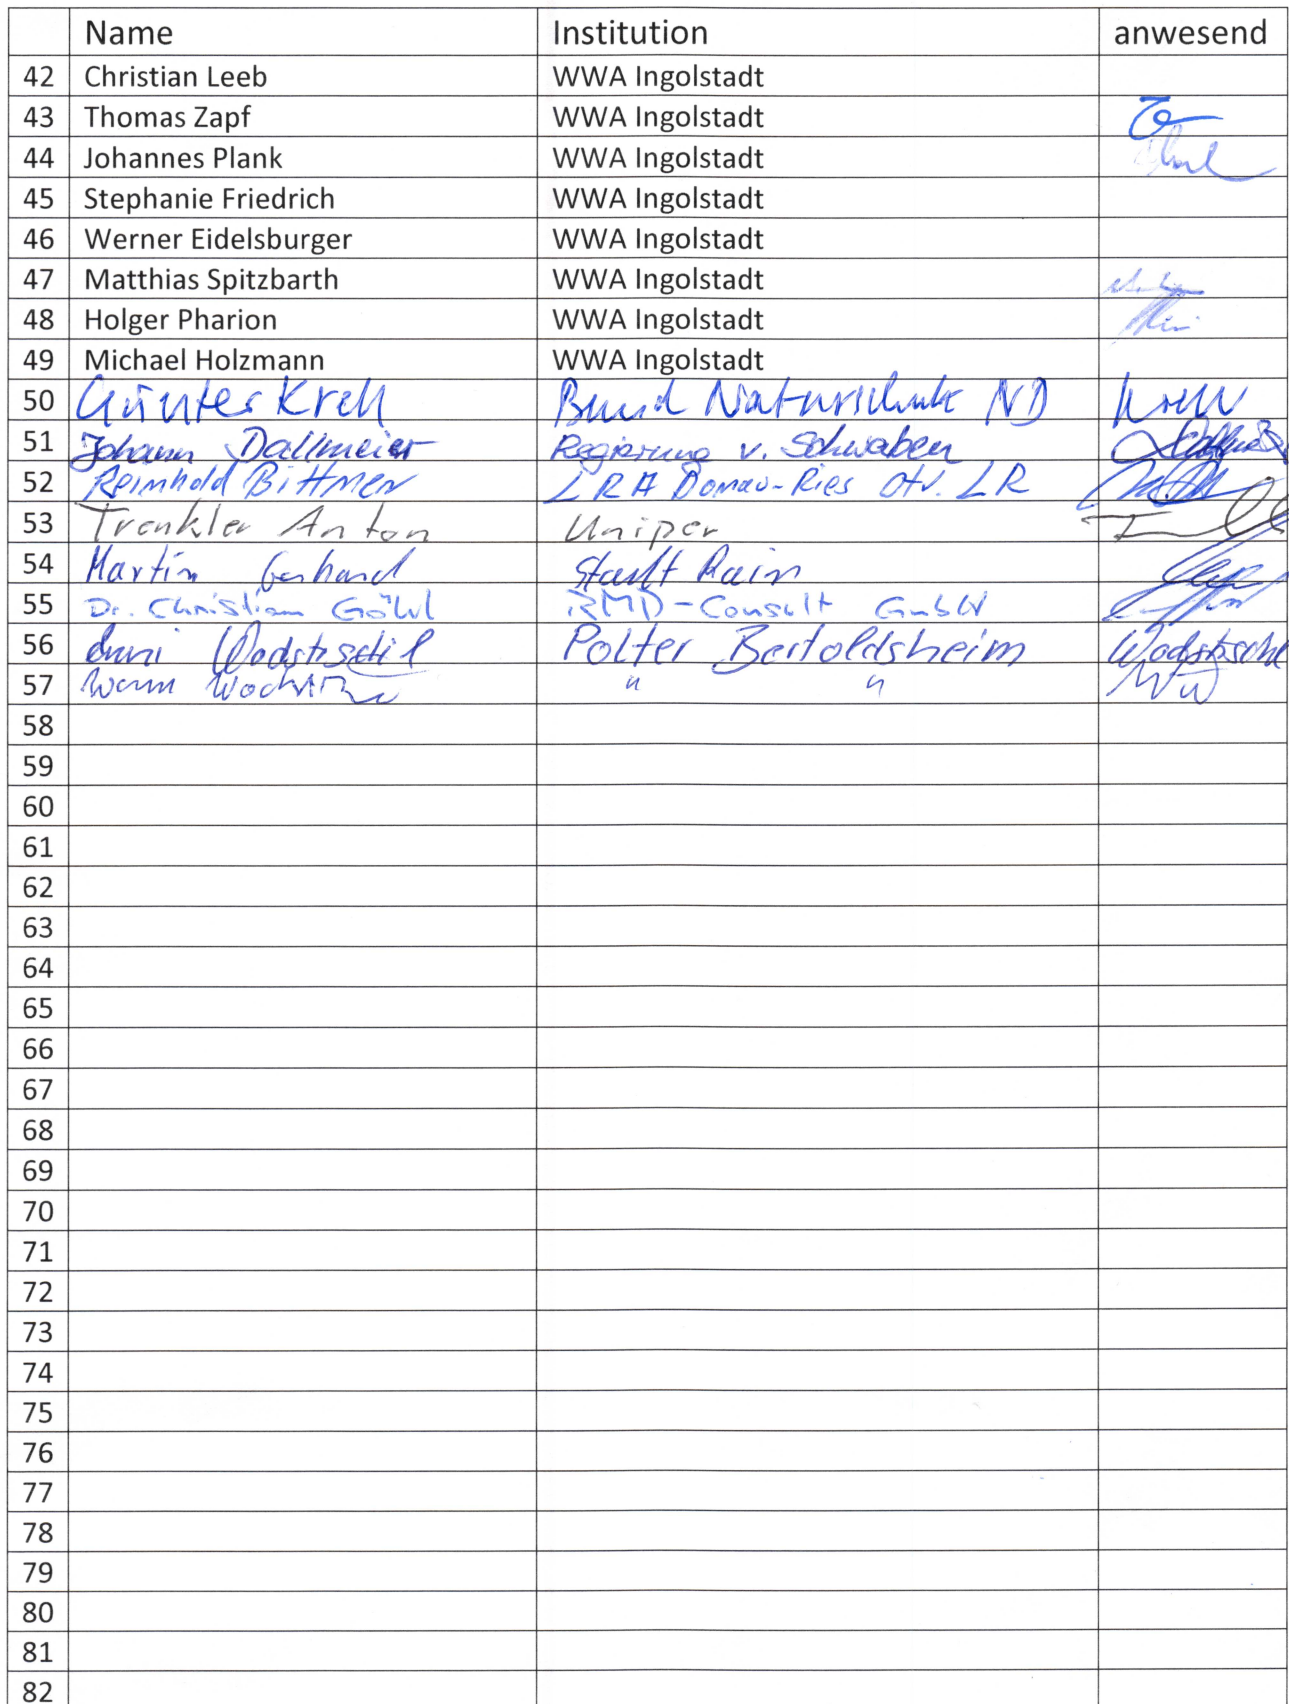 Name Institution anwesend
42 Christian Leeb WWA Ingolstadt
43 Thomas Zapf WWA Ingolstadt
44 Johannes Plank WWA Ingolstadt
45 Stephanie Friedrich WWA Ingolstadt
46 Werner Eidelsburger WWA Ingolstadt
47 Matthias Spitzbarth WWA Ingolstadt
48 Holger Pharion WWA Ingolstadt
49 Michael Holzmann WWA Ingolstadt
50 Günter Krell Bund Naturschutz ND Krell
51 Johann Dallmeier Regierung v. Schwaben
52 Reinhold Bittner LRA Donau-Ries stv. LR
53 Trenkler Anton Uniper
54 Martin Gerhard Stadt Rain
55 Dr. Christian Göhl RMD-Consult GmbH
56 Polter Bertoldsheim
57 " "
58
59
60
61
62
63
64
65
66
67
68
69
70
71
72
73
74
75
76
77
78
79
80
81
82